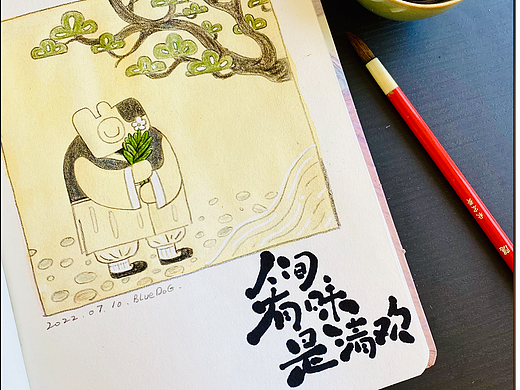 2022.07.10.BlueDoG.
人间
有味
是清欢